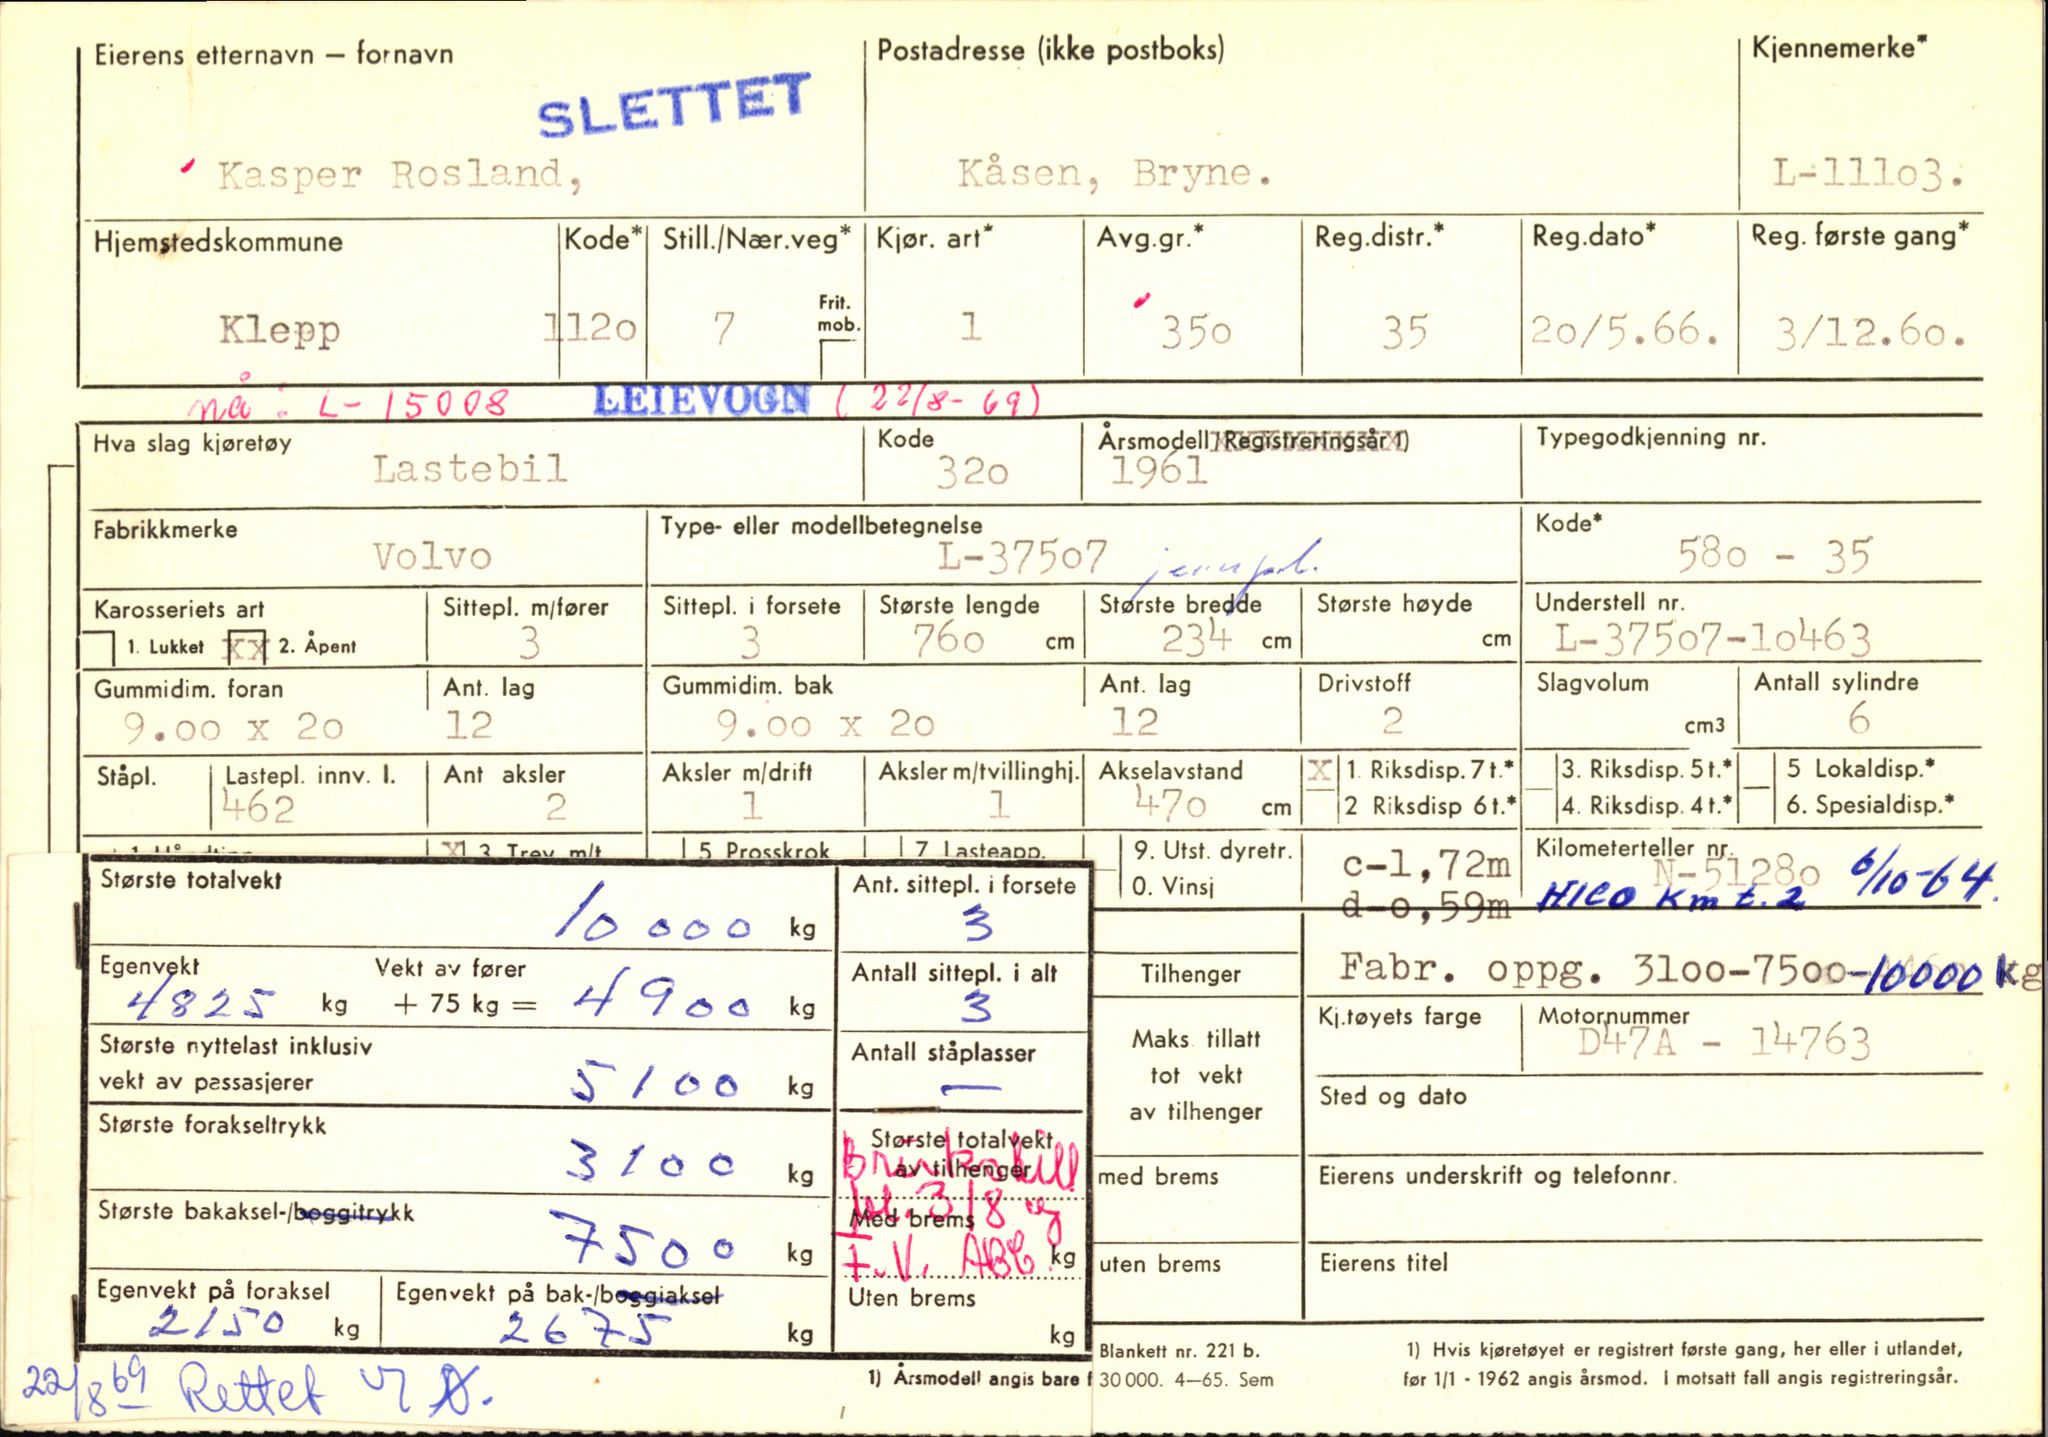 Eierens etternavn — fornavn Postadresse (ikke postboks) Kjennemerke*
SLETTET
Kasper Rosland, Kåsen, Bryne. L-11103.
Hjemstedskommune Kode* Still./Nær.veg* Kjør. art* Avg.gr.* Reg.distr.* Reg.dato* Reg. første gang*
Frit.
mob.
Klepp 1120 7 1 350 35 20/5.66. 3/12.60.
nå: L-15008 LEIEVOGN (22/8-69)
Hva slag kjøretøy Kode Årsmodell/Registreringsår 1) Typegodkjenning nr.
Lastebil 320 1961
Fabrikkmerke Type- eller modellbetegnelse Kode*
Volvo L-37507 580 - 35
Karosseriets art Sittepl. m/fører Sittepl. i forsete Største lengde Største bredde Største høyde Understell nr.
1. Lukket XX 2. Åpent 3 3 760 cm 234 cm cm L-37507-10463
Gummidim. foran Ant. lag Gummidim. bak Ant. lag Drivstoff Slagvolum Antall sylindre
9.00 x 20 12 9.00 x 20 12 2 cm3 6
Ståpl. Lastepl. innv. l. Ant aksler Aksler m/drift Aksler m/tvillinghj. Akselavstand X 1. Riksdisp. 7 t.* 3. Riksdisp. 5 t.* 5 Lokaldisp.*
462 2 1 1 470 cm 2 Riksdisp 6 t.* 4. Riksdisp. 4 t.* 6. Spesialdisp.*
X 3 Trev. m/t 5 Prosskrok 7 Lasteapp. 9. Utst. dyretr. c-1,72m Kilometerteller nr.
0. Vinsj d-0,59m N-51280 6/10-64.
HICO Km t. 2
Største totalvekt 10000 kg Ant. sittepl. i forsete
3
Egenvekt Vekt av fører Antall sittepl. i alt Tilhenger Fabr. oppg. 3100-7500-10000 kg
4825 kg + 75 kg = 4900 kg 3
Kj.tøyets farge Motornummer
D47A - 14763
Største nyttelast inklusiv Antall ståplasser Maks. tillatt
vekt av passasjerer 5100 kg — tot vekt
av tilhenger Sted og dato
Største forakseltrykk 3100 kg Største totalvekt
av tilhenger med brems Eierens underskrift og telefonnr.
Største bakaksel-/boggitrykk 7500 kg Med brems
kg uten brems Eierens titel
pl. 318 og
F.V. ABC
Egenvekt på foraksel Egenvekt på bak-/boggiaksel Uten brems
2150 kg 2675 kg kg
Blankett nr. 221 b. 1) Hvis kjøretøyet er registrert første gang, her eller i utlandet,
1) Årsmodell angis bare f 30 000. 4—65. Sem før 1/1 - 1962 angis årsmod. I motsatt fall angis registreringsår.
22/8 69 Rettet